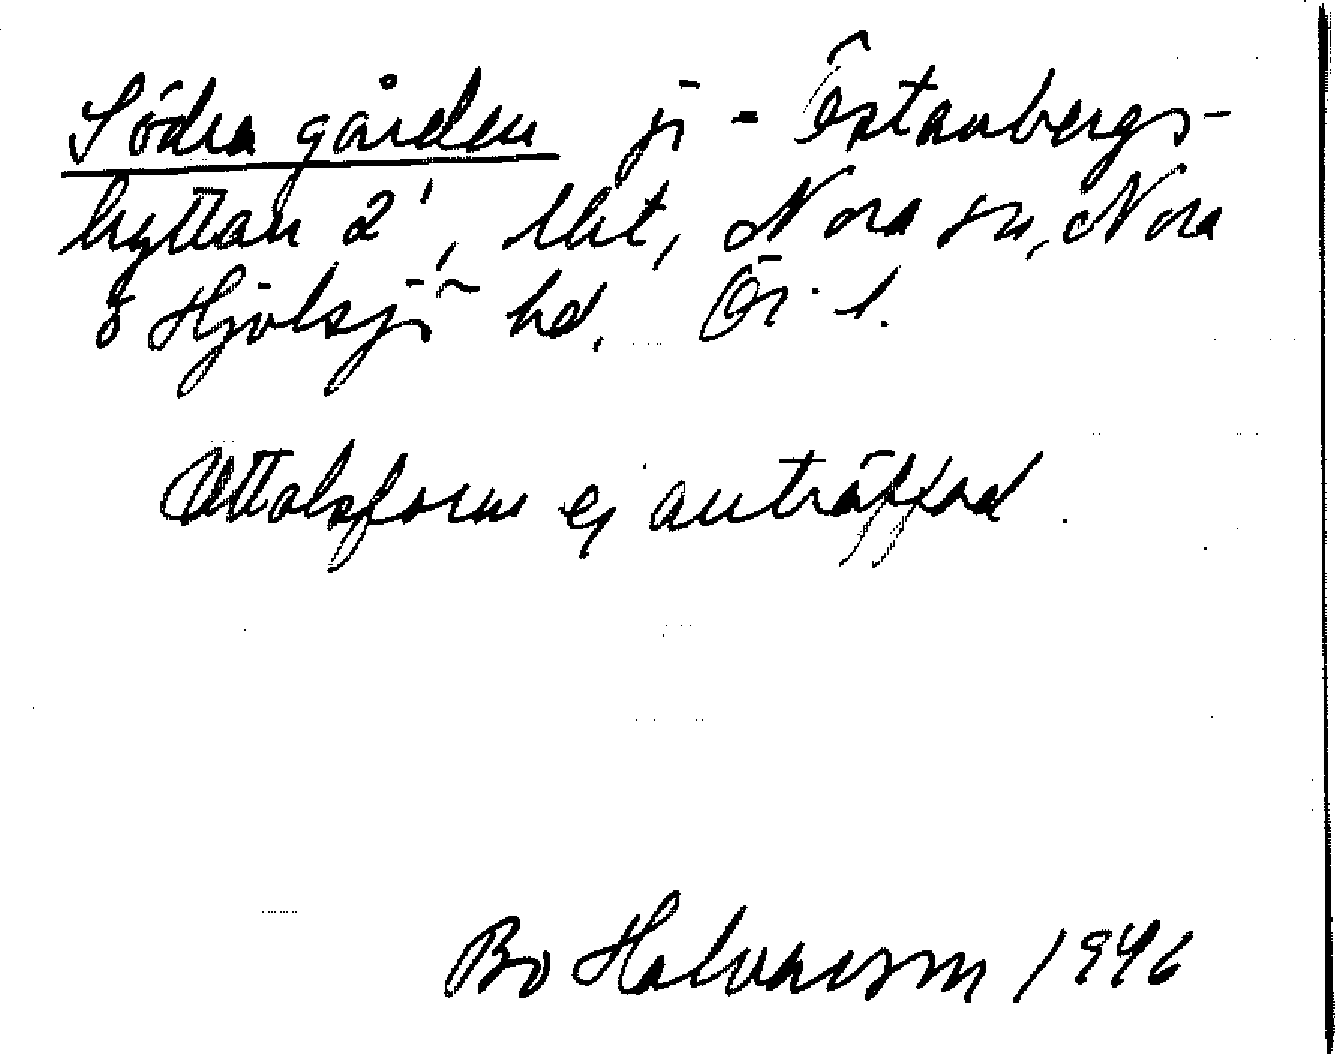 Södra gården jä - Östanbergs-
hyttan 2¹, Nora sn, Nora
o Hjulsjö hd. Ör. l.
Uttalsform ej anträffad.
Bo Halvarson 1946